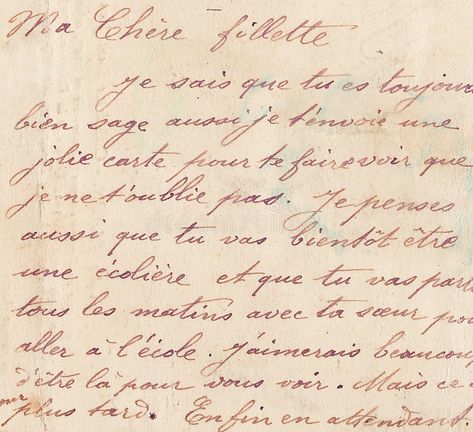 Ma Chère fillette
Je sais que tu es toujours
bien sage aussi je t'envoie une
jolie carte pour te faire voir que
je ne t'oublie pas. Je penses
aussi que tu vas bientôt être
une écolière et que tu vas parti
tous les matins avec ta sœur pou
aller à l'école. J'aimerais beaucou
d'être là pour vous voir. Mais ce
plus tard. Enfin en attendant